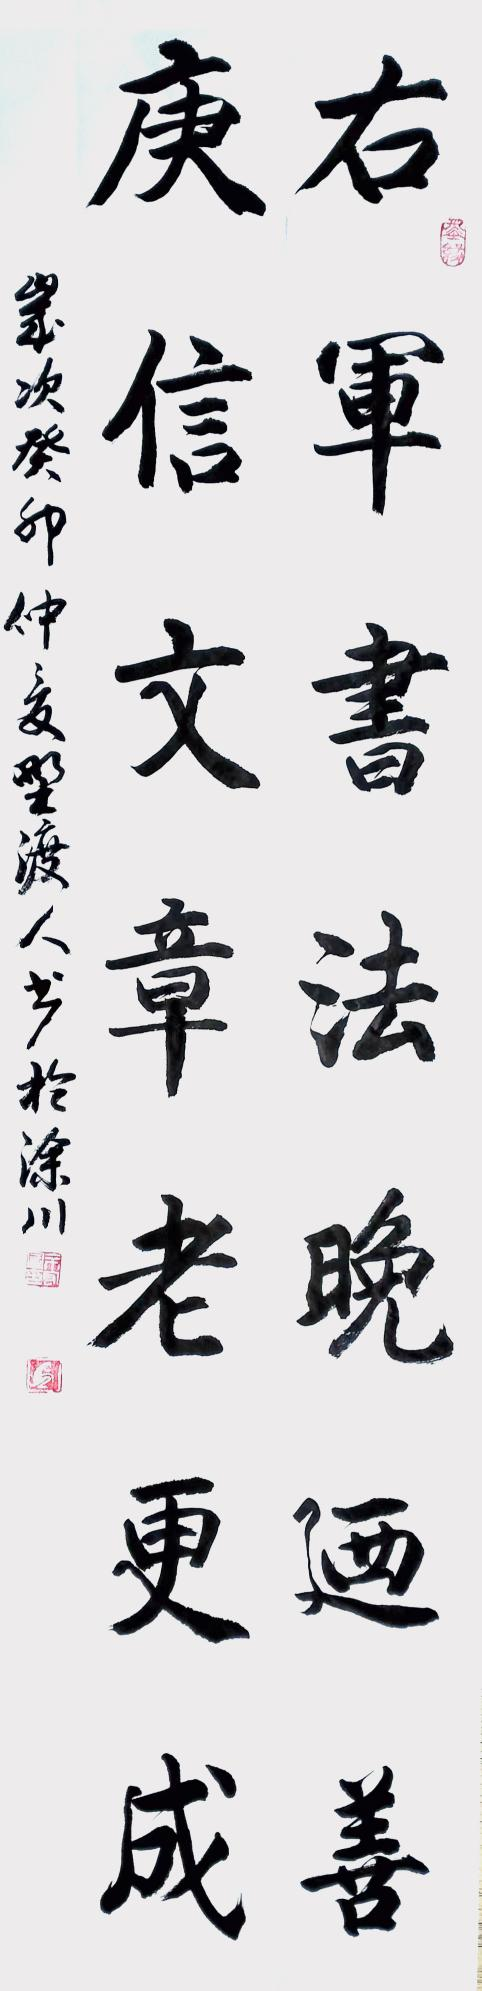 右軍書法晚廼善
庚信文章老更成
歲次癸卯仲夏野渡人书於滁川